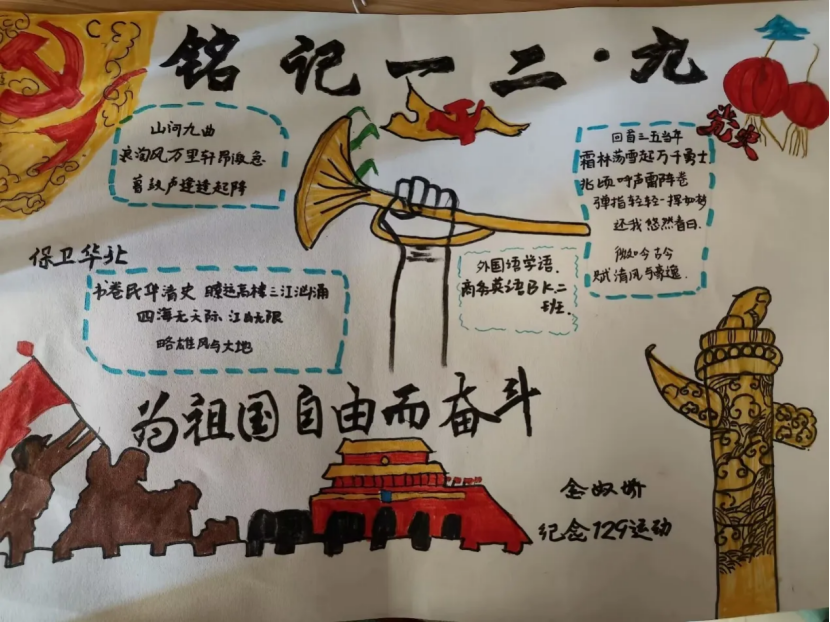 铭记一二·九
山河九曲
浪淘风万里轩昂激急
首越卢迷建起阵
回首三五当年
霜林荡雪起万千勇士
北顷呼声雷阵卷
弹指轻轻一挥如梦
还我悠然昔日.
微如今古今
赋清风与
保卫华北
书卷民华清史 瞭远高楼三江汹涌
四海无天际、江山无限
略雄风与大地
外国语学语.
商务英语B K.二
班.
为祖国自由而奋斗
金姣娇
纪念129运动